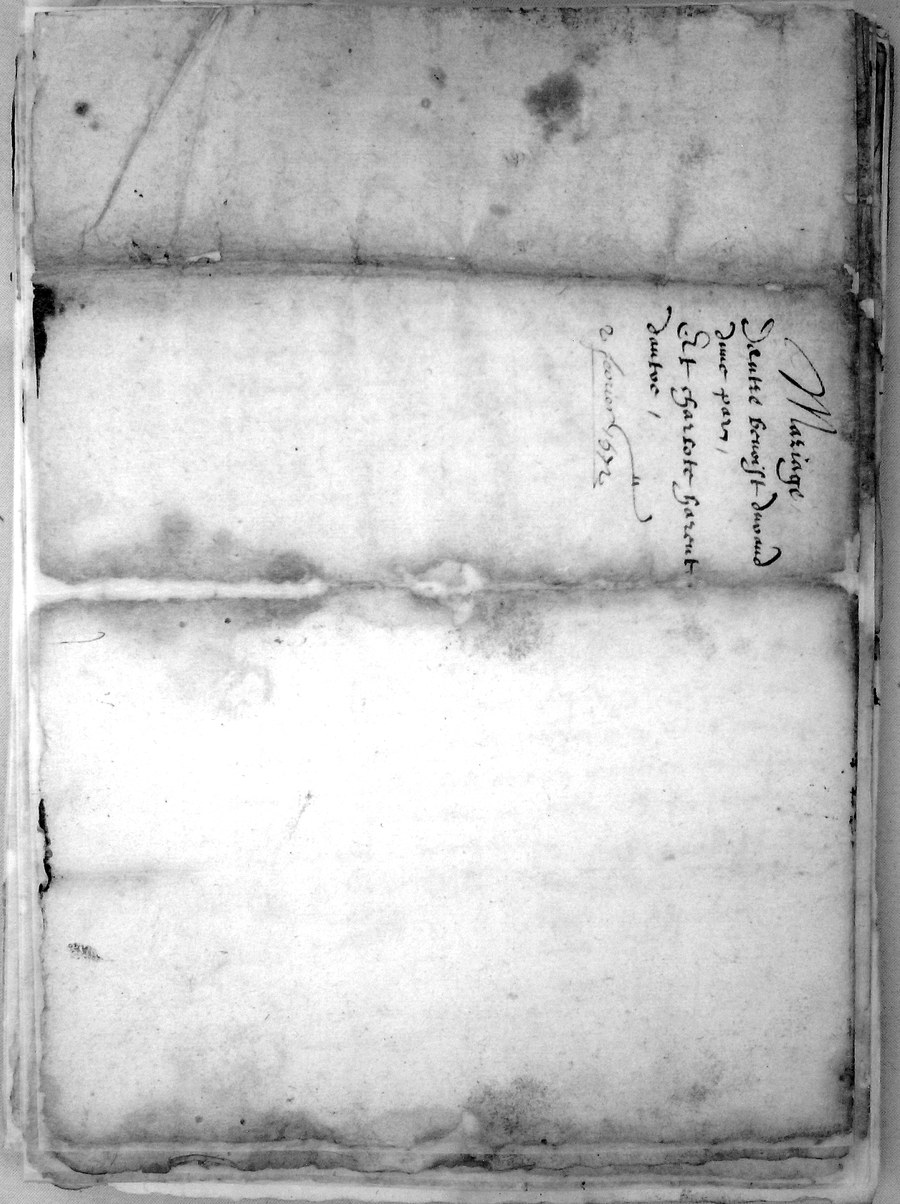 Mariage
Dentre benoist durand
dune part,
Et charlote harent
dautre,
2 feurier 1672